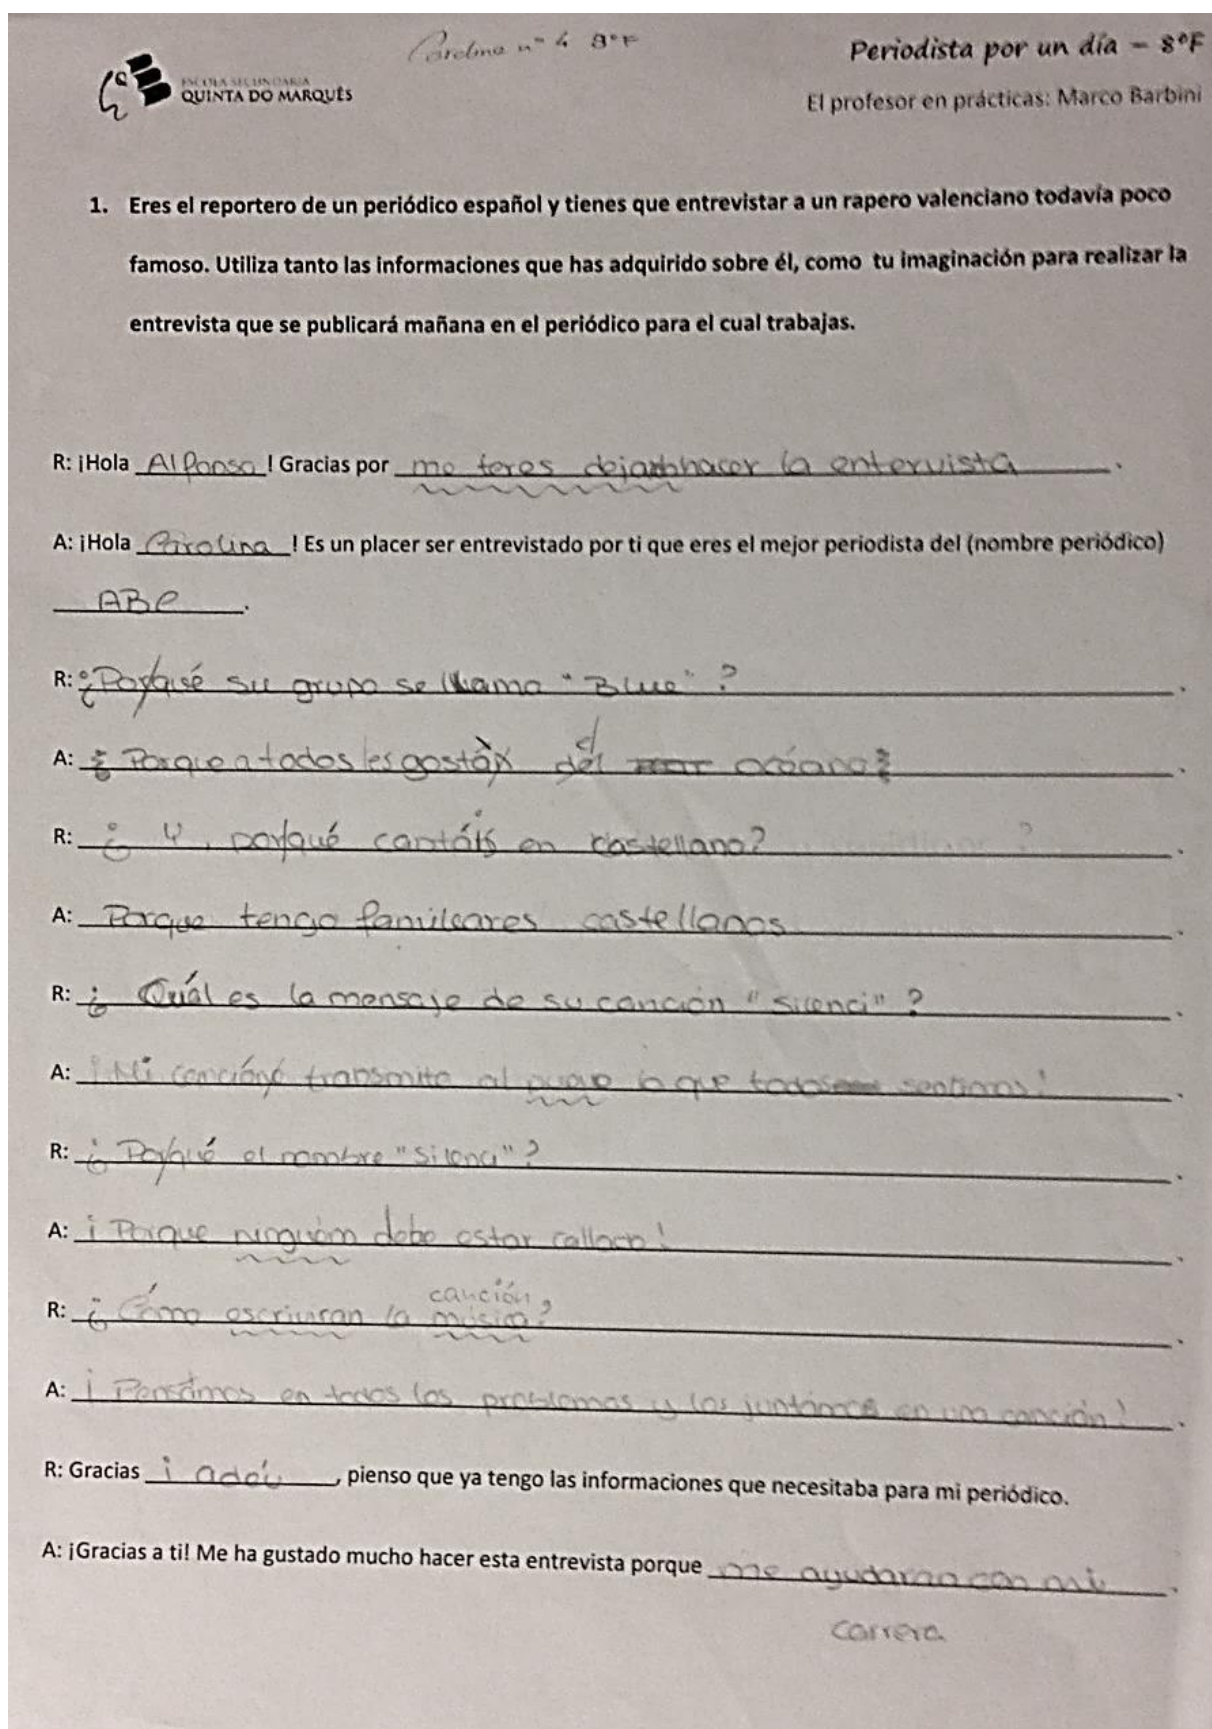 Carolina nº 4 8ºF
Periodista por un día – 8ºF
ESCOLA SECUNDÁRIA
QUINTA DO MARQUÊS
El profesor en prácticas: Marco Barbini
1. Eres el reportero de un periódico español y tienes que entrevistar a un rapero valenciano todavía poco
famoso. Utiliza tanto las informaciones que has adquirido sobre él, como tu imaginación para realizar la
entrevista que se publicará mañana en el periódico para el cual trabajas.
R: ¡Hola Alfonso! Gracias por me teres dejado hacer la entervista.
A: ¡Hola Carolina! Es un placer ser entrevistado por ti que eres el mejor periodista del (nombre periódico)
ABC.
R: ¿Porqué su grupo se llama "Blue"?
el
A: Porque a todos les gosta del mar océano.
R: ¿Y, porqué cantáis en castellano?
A: Porque tengo familiares castellanos.
R: ¿Cuál es la mensaje de su canción "Silenci"?
A: ¡Mi canción transmite al lo que todos sentimos!
R: ¿Porqué el nombre "Silenci"?
A: ¡Porque ninguém debe estar callado!
canción
R: ¿Cómo escriviran la música?
A: ¡Pensámos en todos los problemas y los juntámos en una canción!
R: Gracias, pienso que ya tengo las informaciones que necesitaba para mi periódico.
A: ¡Gracias a ti! Me ha gustado mucho hacer esta entrevista porque me con mi.
carrera